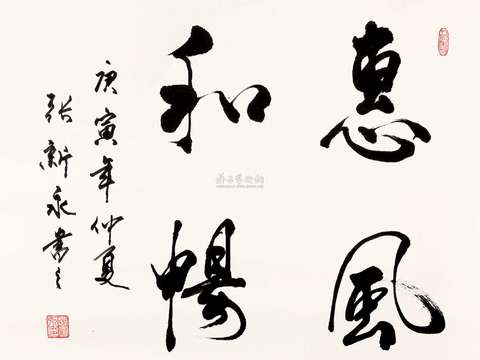 惠風
和暢
庚寅年仲夏
張新永書之